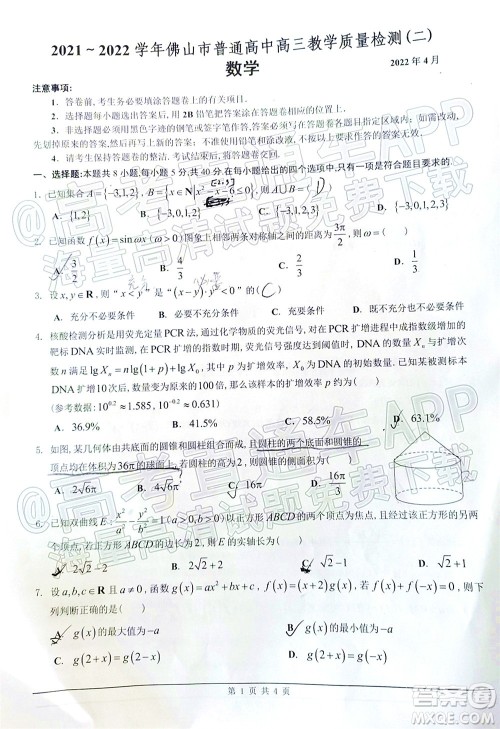 2021～2022 学年佛山市普通高中高三教学质量检测(二)
数学
2022 年 4 月
注意事项：
1. 答卷前,考生务必要填涂答题卷上的有关项目.
2. 选择题每小题选出答案后,用 2B 铅笔把答案涂在答题卷相应的位置上.
3. 非选择题必须用黑色字迹的钢笔或签字笔作答,答案必须写在答题卷各题目指定区域内;如需改动,
先划掉原来的答案,然后再写上新的答案;不准使用铅笔和涂改液.不按以上要求作答的答案无效.
4. 请考生保持答题卷的整洁.考试结束后,将答题卷交回.
一、选择题:本大题共 8 小题,每小题 5 分,共 40 分.在每小题给出的四个选项中,只有一项是符合题目要求的.
1. 已知集合 A={-3,1,2}, B={x∈N|x²-x-6≤0}, 则 A∪B=( D )
A. {1,2} B. {-3,0,1,2} C. {-3,1,2,3} D. {-3,0,1,2,3}
2. 已知函数 f(x)=sinωx (ω>0) 图象上相邻两条对称轴之间的距离为 3π/2, 则 ω=( )
A. 3/2 B. 4/3 C. 2/3 D. 1/3
3. 设 x,y∈R, 则 "x<y" 是 "(x-y)·y²<0" 的( C )
A. 充分不必要条件 B. 充要条件 C. 必要不充分条件 D. 既不充分也不必要条件
4. 核酸检测分析是用荧光定量 PCR 法,通过化学物质的荧光信号,对在 PCR 扩增进程中成指数级增加的
靶标 DNA 实时监测,在 PCR 扩增的指数时期,荧光信号强度达到阈值时,DNA 的数量 Xₙ 与扩增次
数 n 满足 lg Xₙ = n lg(1+p)+lg X₀, 其中 p 为扩增效率, X₀ 为 DNA 的初始数量.已知某被测标本
DNA 扩增10次后,数量变为原来的100倍,那么该标本的扩增效率 p 约为( )
(参考数据: 10^0.2≈1.585, 10^-0.2≈0.631)
A. 36.9% B. 41.5% C. 58.5% D. 63.1%
5. 如图,某几何体由共底面的圆锥和圆柱组合而成,且圆柱的两个底面圆周和圆锥的
顶点均在体积为 36π 的球面上,若圆柱的高为 2,则圆锥的侧面积为( )
A. 2√6π B. 4√6π C. 16π D. 16π/3
6. 已知双曲线 E: x²/a²-y²/b²=1 以正方形 ABCD 的两个顶点为焦点,且经过该正方形的另
两个顶点,若正方形 ABCD 的边长为 2,则 E 的实轴长为( )
A. 2√2-2 B. 2√2+2 C. √2-1 D. √2+1
7. 设 a,b,c∈R 且 a≠0, 函数 g(x)=ax²+bx+c, f(x)=(x+2)g(x), 若 f(x)+f(-x)=0, 则下
列判断正确的是( )
A. g(x) 的最大值为 -a B. g(x) 的最小值为 -a
C. g(2+x)=g(2-x) D. g(2+x)=g(-x)
第 1 页 共 4 页
高考直通车APP
海量高清试题免费下载
高考直通车APP
海量高清试题免费下载
答案圈
MXQE.COM